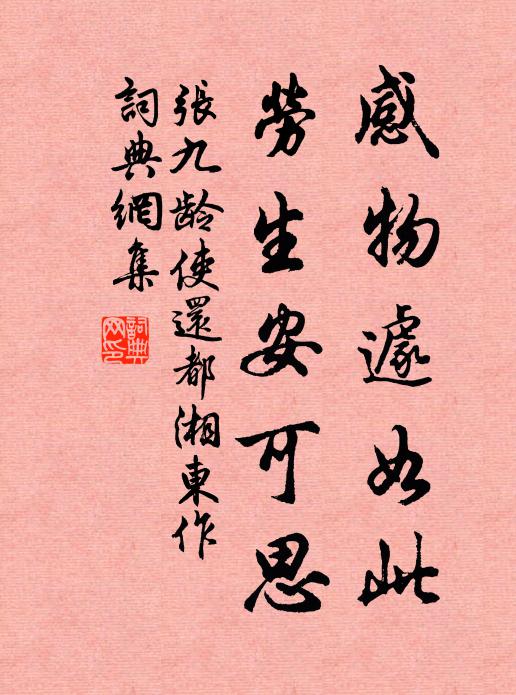 感物遽如此
勞生安可思
張九齡使還都湘東作
詞典網集
詞典網印